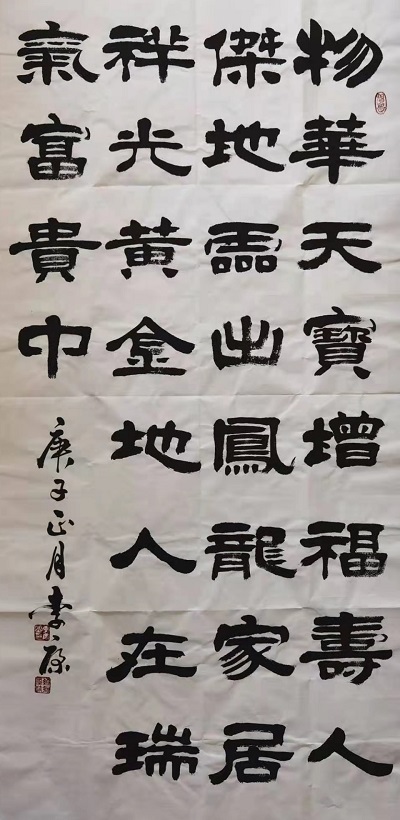 物華天寶增福壽人
傑地霝出鳳龍家居
祥光黄金地人在瑞
氣富貴中
庚子正月李